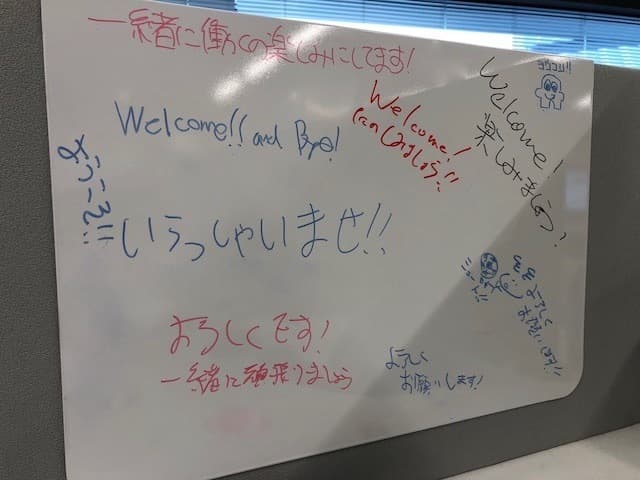 一緒に働くの楽しみにしてます!
Welcome!! and Bye!
Welcome!
Welcome!
楽しみましょう!
ようこそ!!
いらっしゃいませ!!
よろしくです!
一緒に頑張りましょう
よろしく
お願いします!
よろしく
お願いします!!